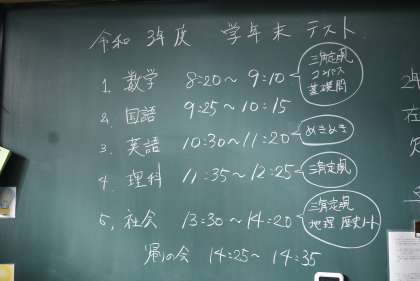 令和 3年度 学年末 テスト
1. 数学 8:20～9:10 三角定規 コンパス 基礎問
2. 国語 9:25～10:15
3. 英語 10:30～11:20 めきめき
4. 理科 11:35～12:25 三角定規
5, 社会 13:30～14:20 三角定規 地理 歴史ノート
帰りの会 14:25～14:35